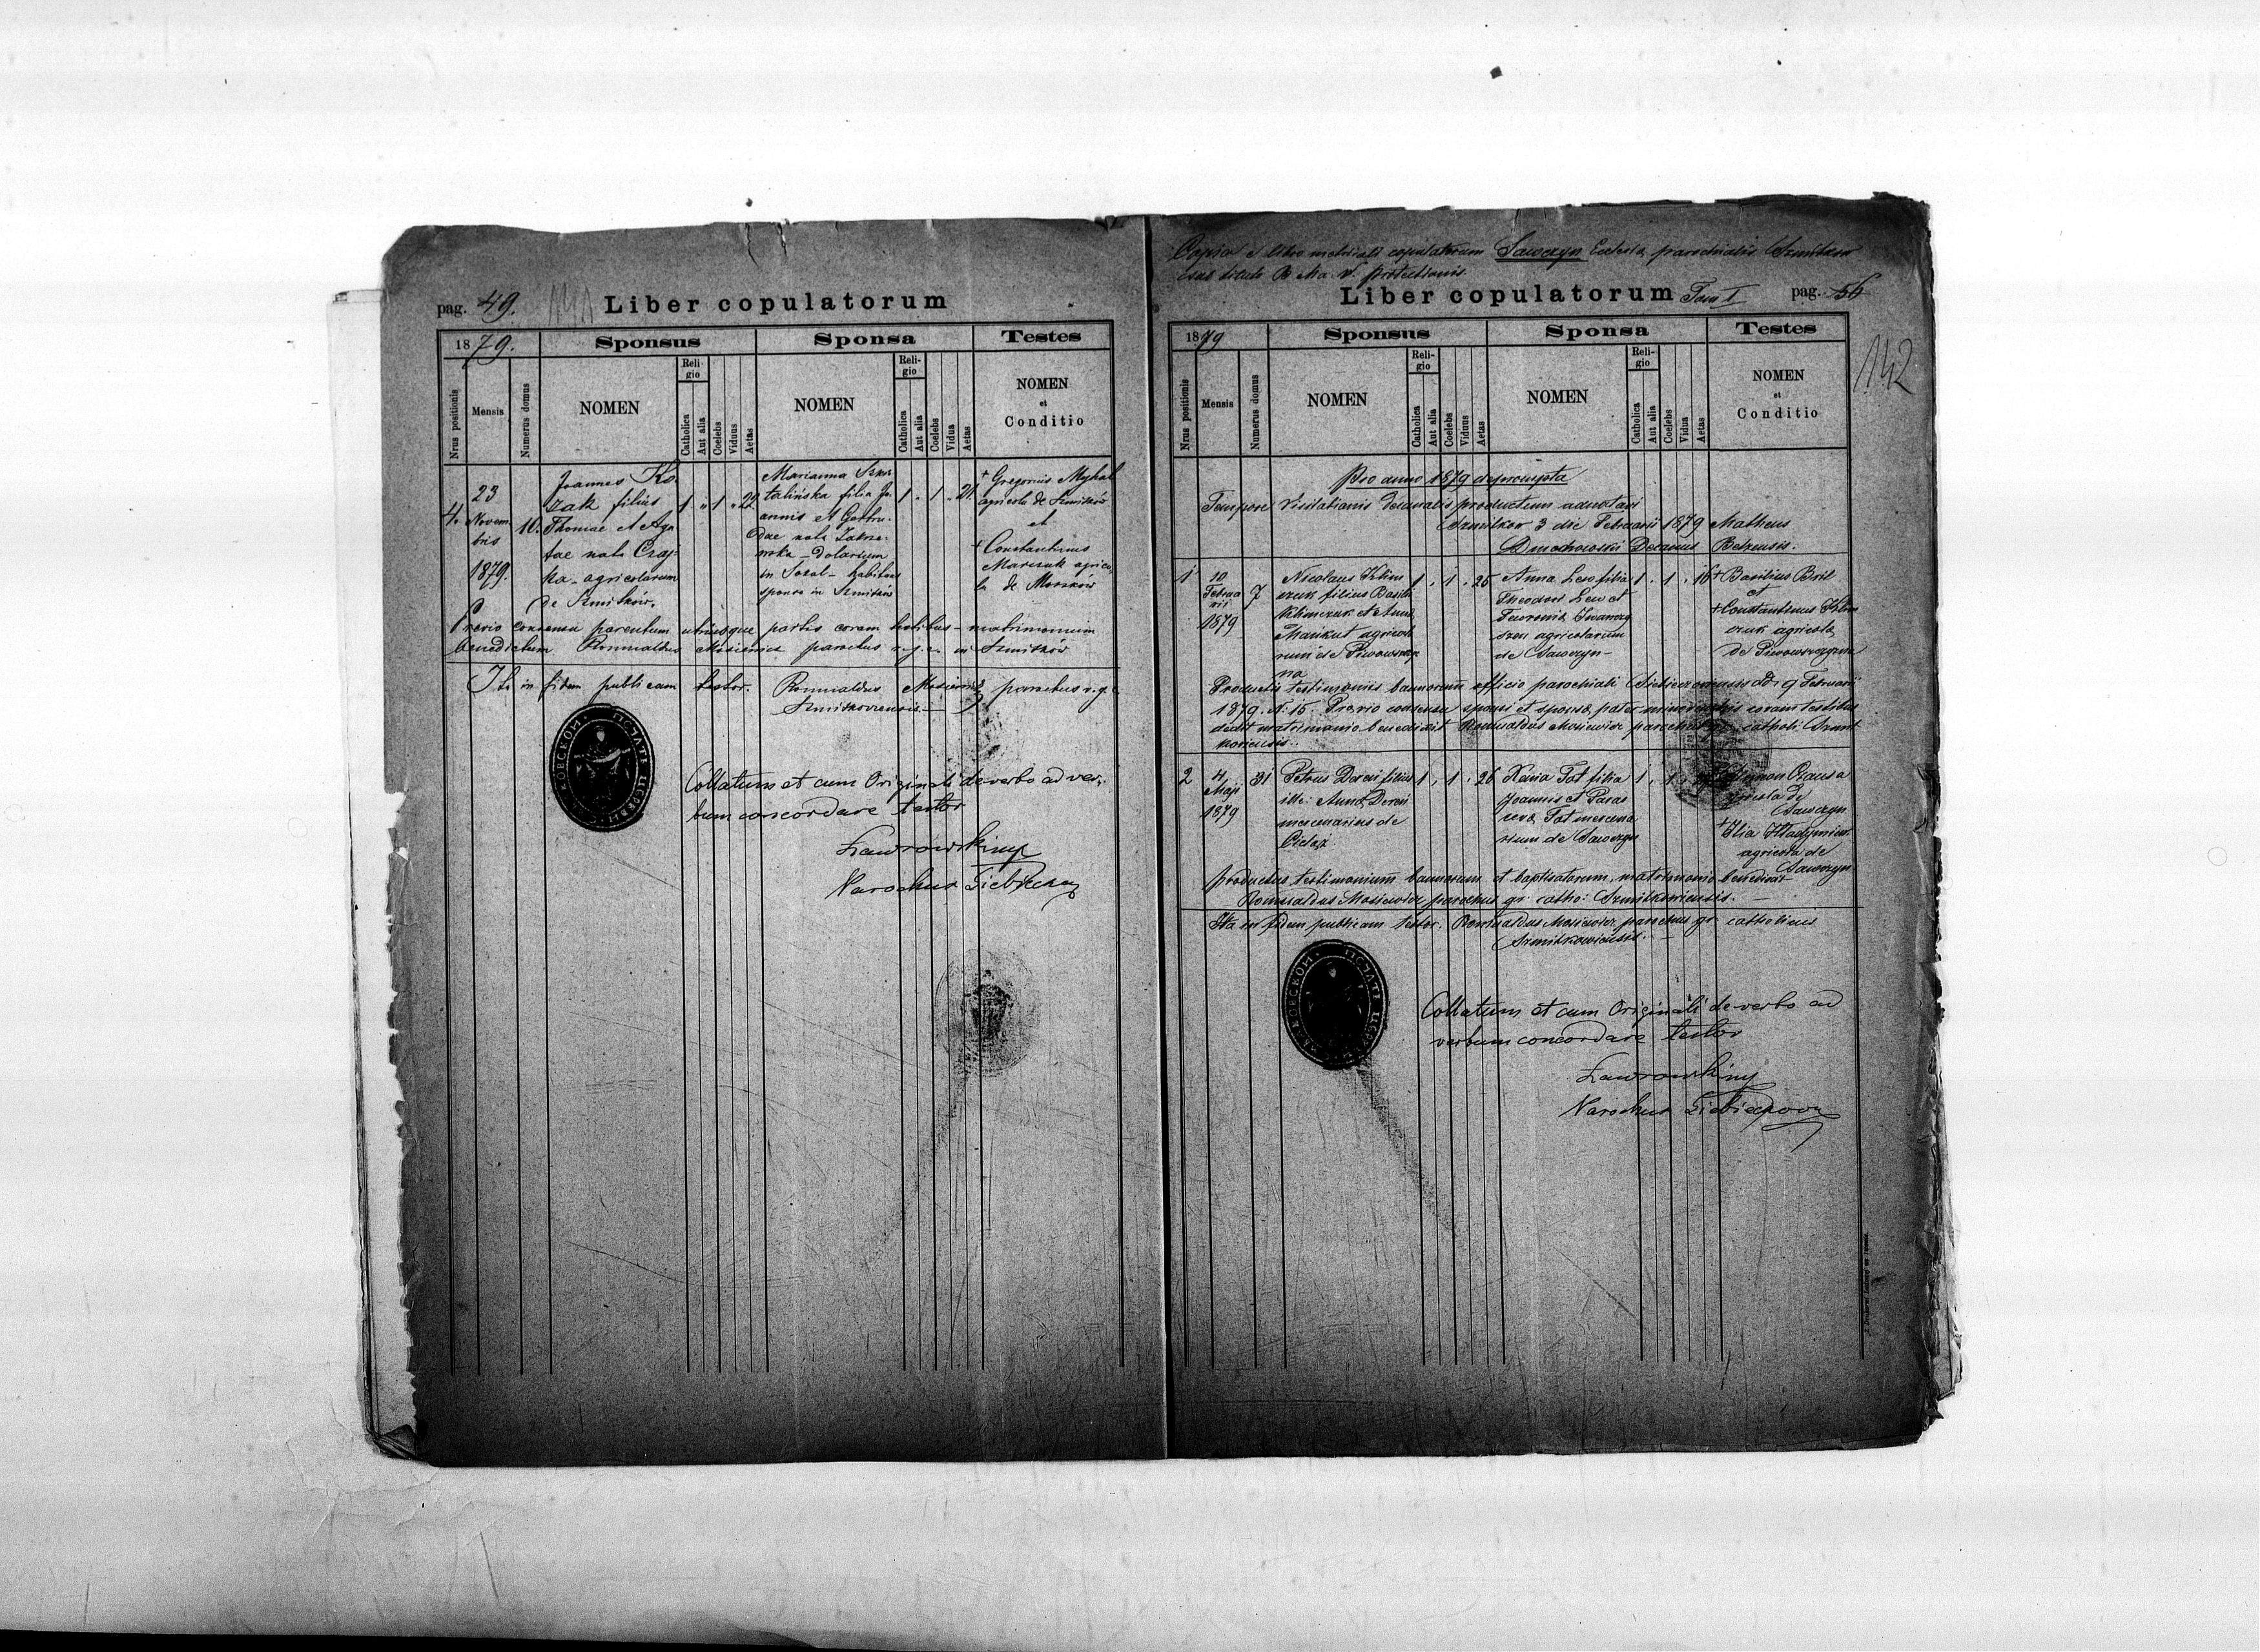 pag. 49.
Liber copulatorum
1879.
Sponsus
Sponsa
Testes
Nrus positionis
Mensis
Numerus domus
NOMEN
Religio
Catholica
Aut alia
Coelebs
Viduus
Aetas
NOMEN
Religio
Catholica
Aut alia
Coelebs
Vidua
Aetas
NOMEN
et
Conditio
4.
23
Novem
bris
1879.
10.
Joannes Ko
zak filius
Thomae et Aga
tae nata Czaj
ka - agricolarum
de Szmitków.
1 " 1 " 22
Marianna
talińska filia Jo
annis et Gertru
dae nata
- Dolarium
in Sokal - habitans
sponsa in Szmitków
1 . 1 . 21
+ Gregorius Myhal
agricola de Szmitków
et
+ Constantinus
Marczuk agrico
la de Moszków
Previo consensu parentum utriusque partis coram testibus - matrimonium
benedictum Romualdus Mosiewicz parochus r.g.c. in Szmitków
Ita in fidem publicam testor. Romualdus Mosiewicz parochus r.g.c.
Szmitkoviensis.
Collatum et cum Originali de verbo ad ver-
bum concordare testor
Ławrowski
Parochus
Copia e libro metricali copulatorum Sawczyn Ecclesia parochialis Szmitkow
sub titulo B. Ma. V. Protectionis
Liber copulatorum Tom I
pag. 56
142
1879
Sponsus
Sponsa
Testes
Nrus positionis
Mensis
Numerus domus
NOMEN
Religio
Catholica
Aut alia
Coelebs
Viduus
Aetas
NOMEN
Religio
Catholica
Aut alia
Coelebs
Vidua
Aetas
NOMEN
et
Conditio
Pro anno 1879 deprompta
Tempore Visitationis Decanalis productum adnotavi
Szmitkow 3 die Februarii 1879 Matheus
Decanus Belzensis.
1
10
Februa
rii
1879
7
Nicolaus Klim
czuk filius Basili
Klimczuk et Anna
Mankut agricola
rum de Piwowszczyz
na
1 . 1 . 25
Anna Lew filia
Theodori Lew et
Fewronia
agricolarum
de Sawczyn -
1 . 1 . 16
+ Basilius Bril
et
+ Constantinus Klim
czuk agricola
de Piwowszczyzna
Productis testimoniis bannorum officio parochiali dd. 9 Februarii
1879. N. 15. Previo consensu sponsi et sponsa coram testibus
matrimonio benedixit Romualdus Mosiewicz parochus gr. catholi. Szmit
koviensis.
2
4
Maji
1879
31
Petrus Dereń filius
ille: Anna Dereń
mercenarius de
1 . 1 . 26
Xenia Fat filia
Joannis et Paras
ceva Fat mercena
rium de Sawczyn
1 . 1
Simon
agricola de
Sawczyn
+ Ilia
agricola de
Sawczyn
productus testimonium bannorum et baptisatorum, matrimonio benedixit
Romualdus Mosiewicz parochus gr. catho: Szmitkowiensis.
Ita in fidem publicam testor. Romualdus Mosiewicz parochus gr. catholicus
Szmitkowiensis.
Collatum et cum Originali de verbo ad
verbum concordare testor
Ławrowski
Parochus